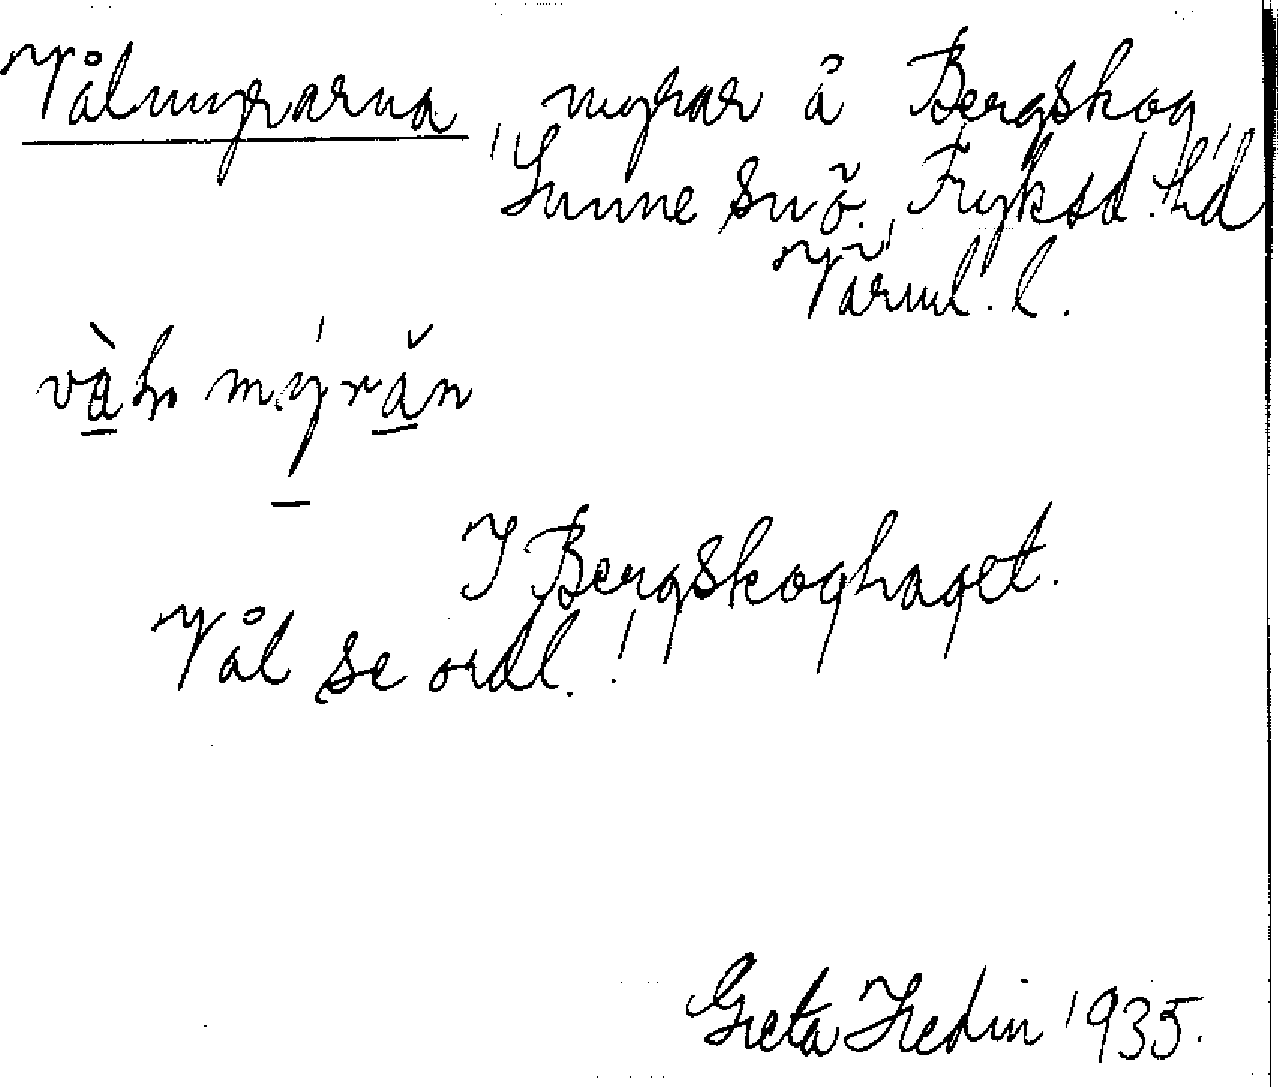 Vålmyrarna, myrar å Bergskog,
Sunne sn ö., Fryksd. hd
Värml. l.
mýrăn
I Bergskoghaget.
Vål se ordl.!
Greta Hedin 1935.